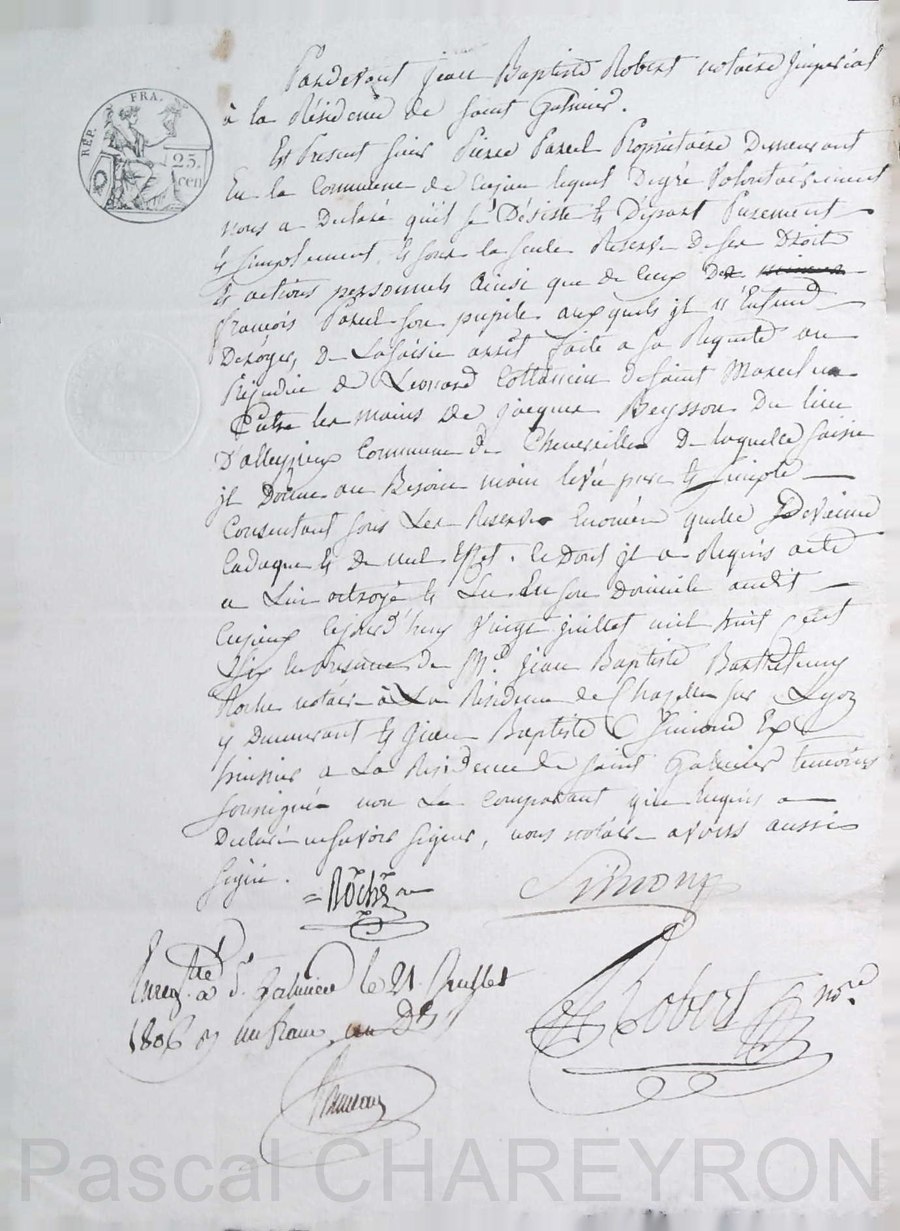 RÉP. FRA.
25.
cen
Pardevant jean Baptiste Robert notaire jmperial
à la Résidence de saint Galmier.
Est Present sieur Pierre Pareul Proprietaire Demeurant
En la Commune de Cusieu lequel Degré Volontairement
nous a Declaré qu'il se Désiste & Dépard Purement
& simplement, & sous la seule Reserve de ses Droits
& actions personnels ainsi que de ceux De
françois Pareul son pupile auxquels jl n'Entend
Deroger, de la saisie arrêt faite a sa Requete au
Préjudice de Leonard de saint Marcel
Entre les mains de jacques Beysson Du lieu
D'alleyzieux Commune de Chevrieres De laquelle saisie
jl Donne au Besoin main levée pure & simple
Consentant sous Les Reserves Enoncées quelle Devienne
Caduque & De nul Effet. Ce Dont jl a Requis acte
a Lui octroyé & Lu En son Domicile audit
Cuzieux Cejourd'huy Vingt juillet mil huit Cent
Six En Presence de Me. jean Baptiste Barthelemy
Roche notaire à La Résidence de Chazelles sur Lyon
y Demeurant & jean Baptiste Simond Ex
huissier a La Résidence de saint Galmier temoins
soussignés non Le Comparant qui Requis a
Declaré ne savoir signer, nous notaire avons aussi
signé.
Roche nre
Simond
Enregtré à St. Galmier le 21 Juillet
1806 un franc
Robert nore.
Pascal CHAREYRON